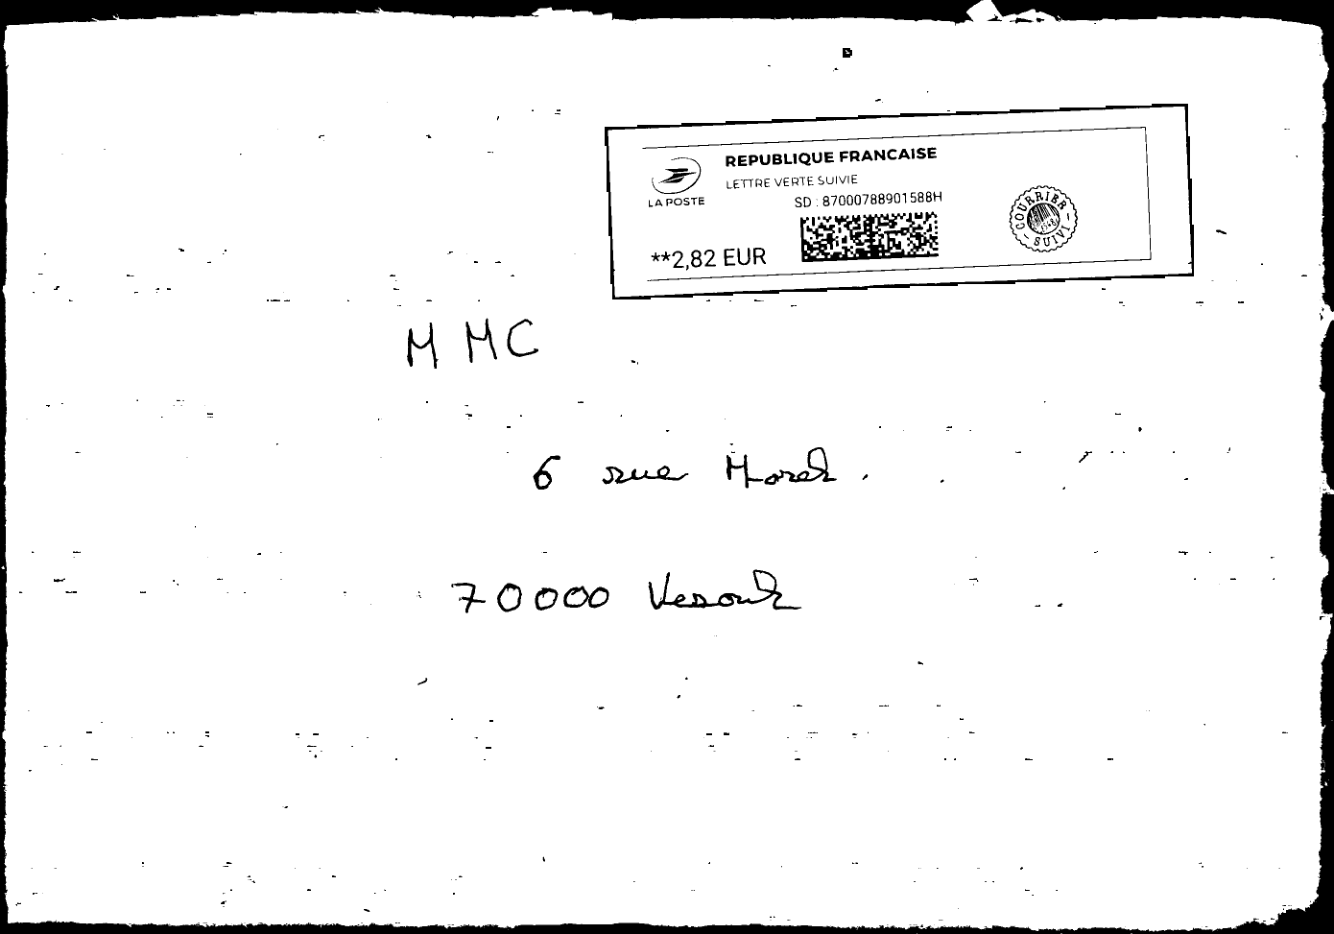 REPUBLIQUE FRANCAISE
LETTRE VERTE SUIVIE
LA POSTE
SD : 87000788901588H
**2,82 EUR
COURRIER SUIVI
M MC
6 rue Morel
70000 Vesoul